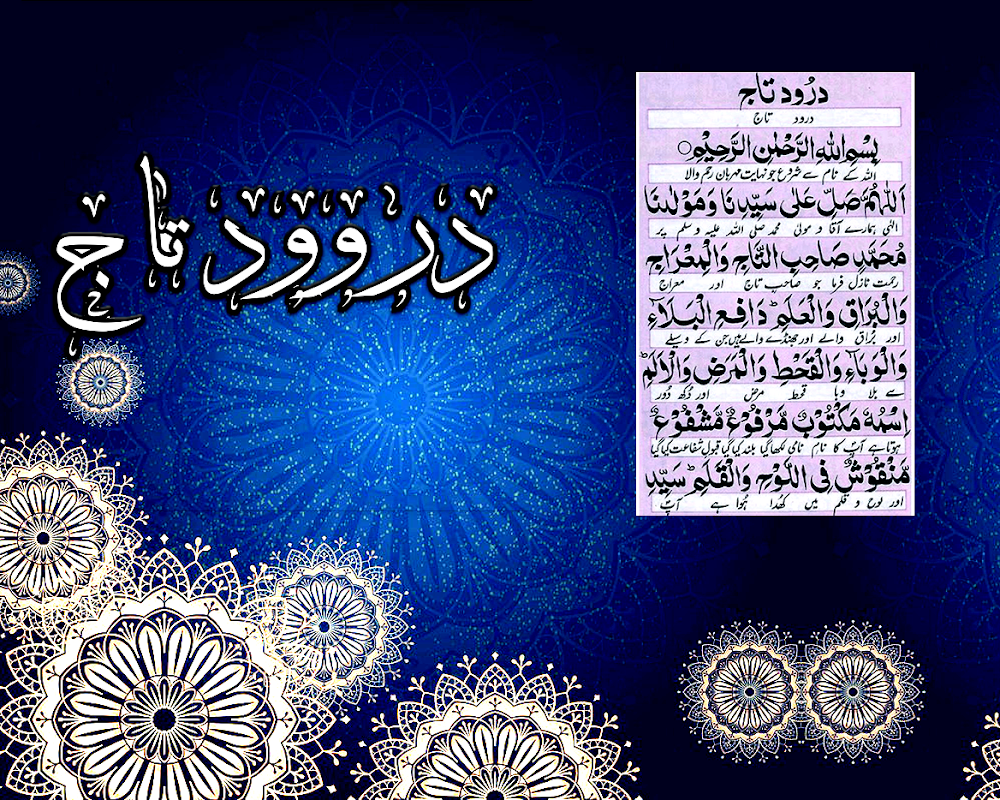 دروود تاج
دُرُود تاج
درود تاج
بِسْمِ اللهِ الرَّحْمٰنِ الرَّحِيْمِ○
اللہ کے نام سے شروع جو نہایت مہربان رحم والا
اَللّٰهُمَّ صَلِّ عَلٰى سَيِّدِنَا وَمَوْلٰىنَا
الٰہی ہمارے آقا و مولیٰ محمد صلی اللہ علیہ وسلم پر
مُحَمَّدٍ صَاحِبِ التَّاجِ وَالْمِعْرَاجِ
رحمت نازل فرما جو صاحب تاج اور معراج
وَالْبُرَاقِ وَالْعَلَمِ دَافِعِ الْبَلَاءِ
اور براق والے اور جھنڈے والے ہیں جن کے وسیلے
وَالْوَبَاءِ وَالْقَحْطِ وَالْمَرَضِ وَالْاَلَمِ
سے بلا وبا قحط مرض اور دُکھ دُور
اِسْمُهٗ مَكْتُوْبٌ مَّرْفُوْعٌ مَّشْفُوْعٌ
ہوتا ہے آپ کا نام نامی لکھا گیا بلند کیا گیا قبول شفاعت کیا گیا
مَّنْقُوْشٌ فِى اللَّوْحِ وَالْقَلَمِ سَيِّدِ
اور لوح و قلم میں کھُدا ہُوا ہے آپ